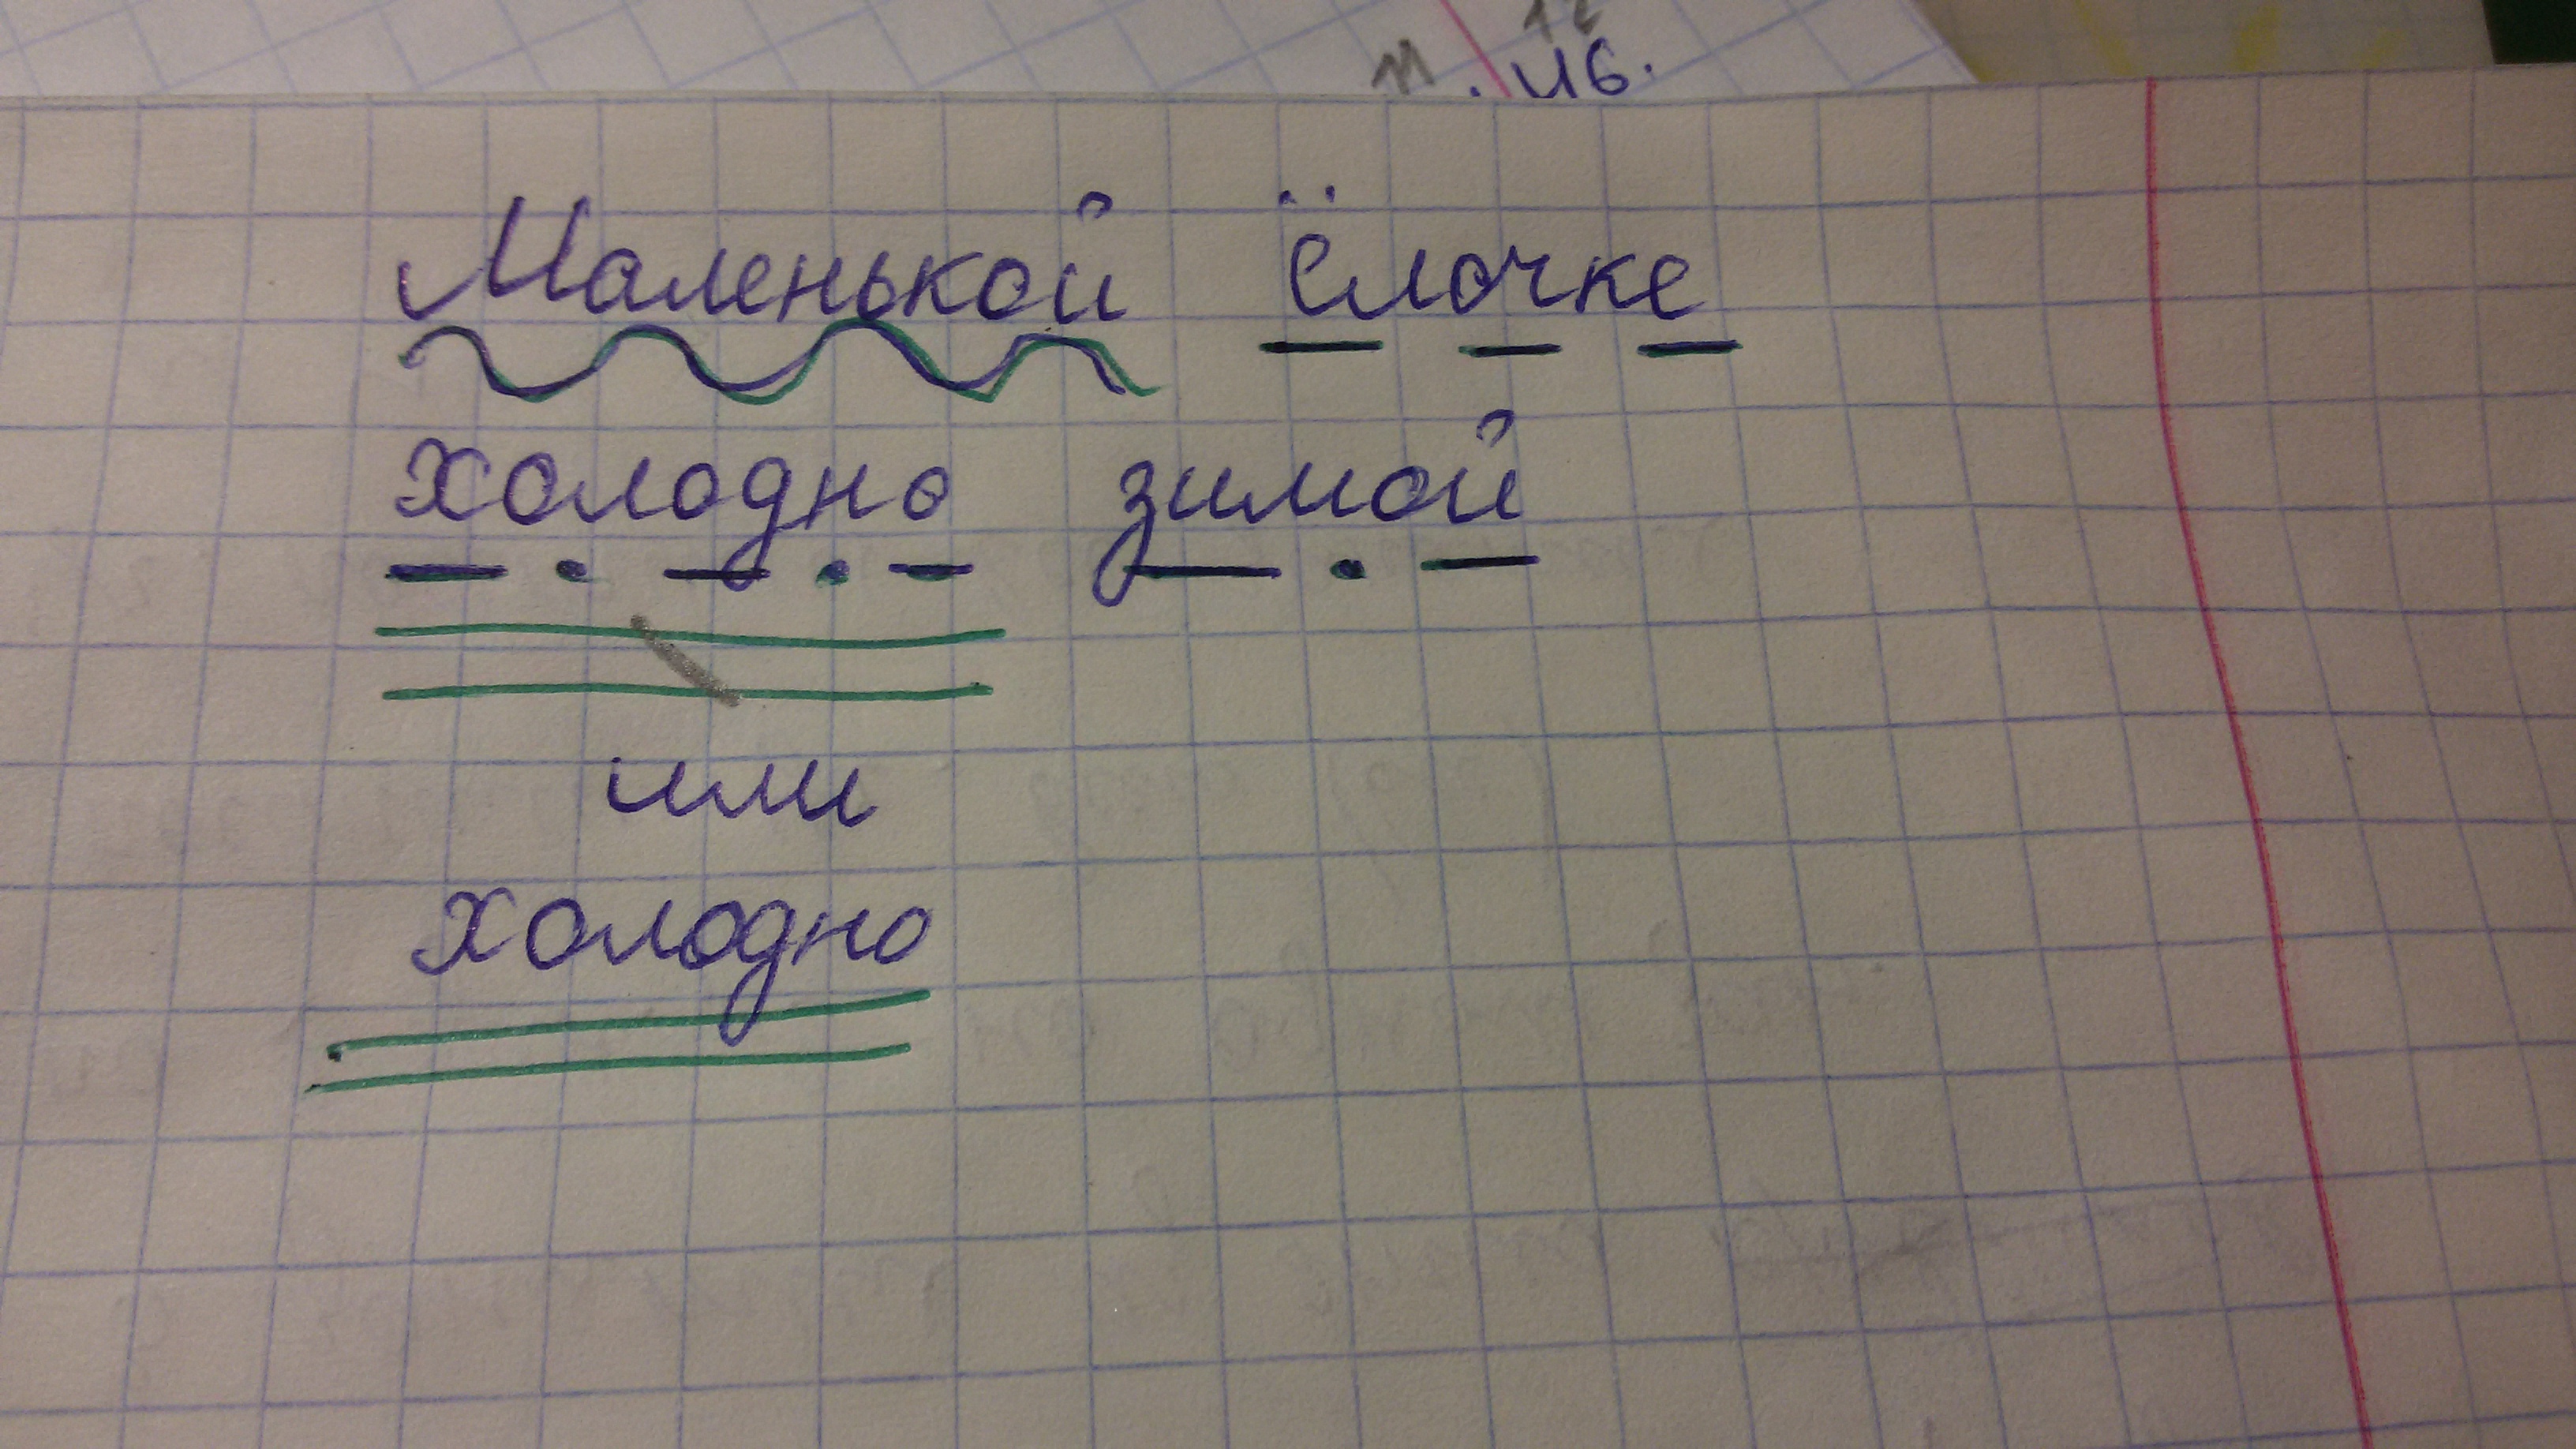 11 12
. ч6.
Маленькой ёлочке
холодно зимой
или
холодно